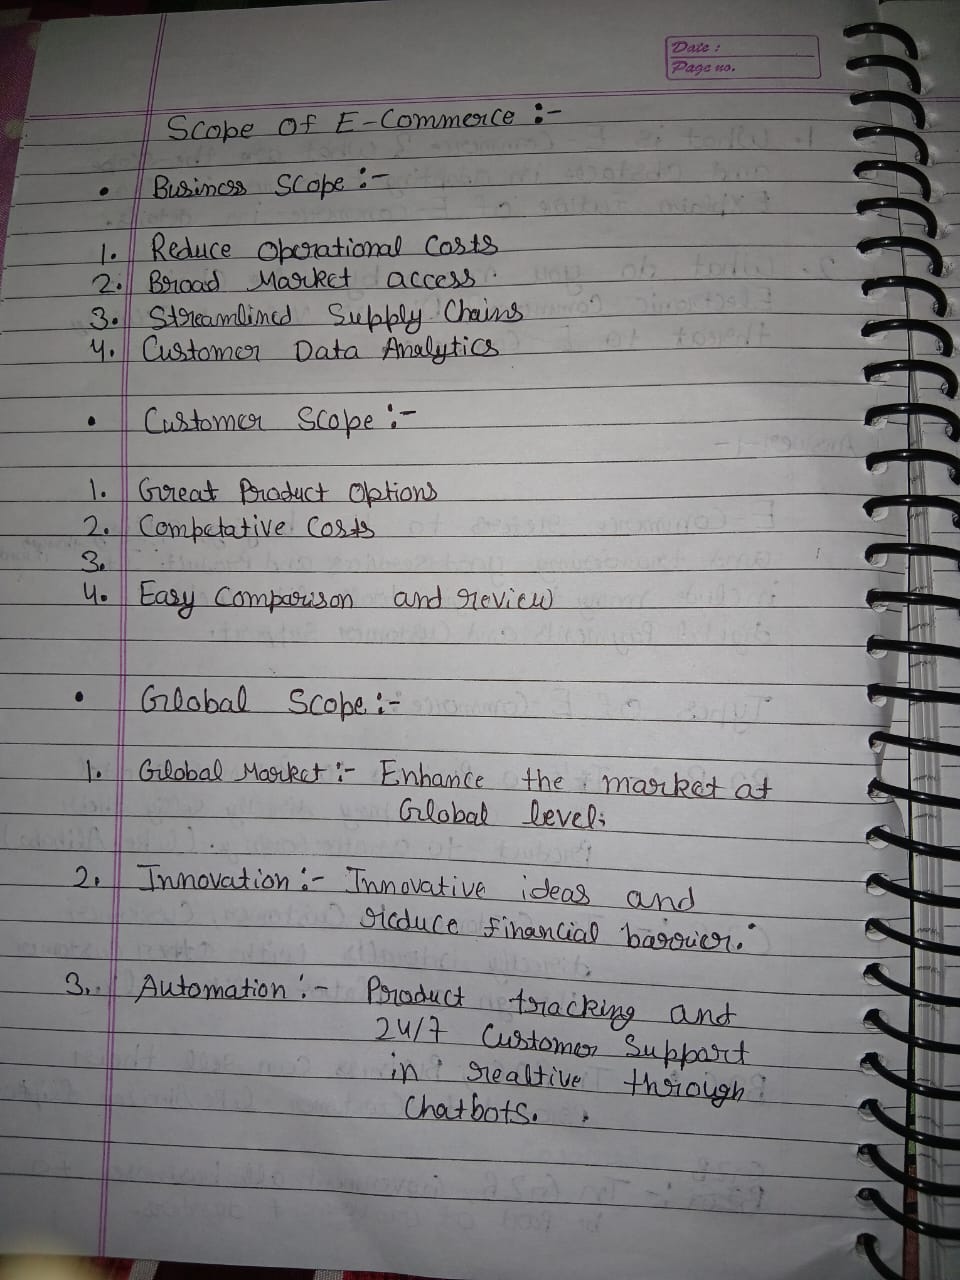 Date :
Page no.
Scope Of E-Commerce :-
• Business Scope :-
1. Reduce Operational Costs
2. Broad Market access.
3. Streamlined Supply Chains
4. Customer Data Analytics
• Customer Scope :-
1. Great Product Options
2. Competative Costs
3.
4. Easy Comparison and review
• Global Scope :-
1. Global Market :- Enhance the market at
Global level.
2. Innovation :- Innovative ideas and
reduce financial barrier.
3. Automation :- Product tracking and
24/7 Customer Support
in realtive through
Chatbots.